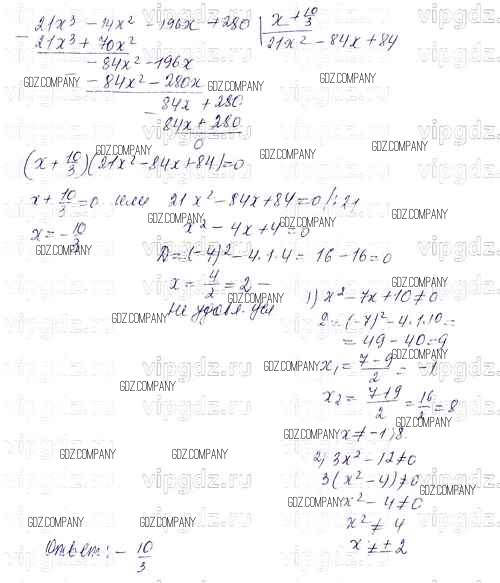 21x³ - 14x² - 196x + 280 | x + 10/3
21x³ + 70x² | 21x² - 84x + 84
- 84x² - 196x
- 84x² - 280x
84x + 280
84x + 280
0
(x + 10/3)(21x² - 84x + 84) = 0
x + 10/3 = 0 или 21x² - 84x + 84 = 0 /: 21
x = - 10/3
x² - 4x + 4 = 0
D = (-4)² - 4·1·4 = 16 - 16 = 0
x = 4/2 = 2 -
не удовл. усл
1) x² - 7x + 10 ≠ 0
D = (-7)² - 4·1·10 =
= 49 - 40 = 9
x₁ = 7 - 9/2 = -1
x₂ = 7 + 9/2 = 16/2 = 8
x ≠ -1; 8
2) 3x² - 12 ≠ 0
3(x² - 4) ≠ 0
x² - 4 ≠ 0
x² ≠ 4
x ≠ ± 2
Ответ: - 10/3
GDZ.COMPANY
vipgdz.ru